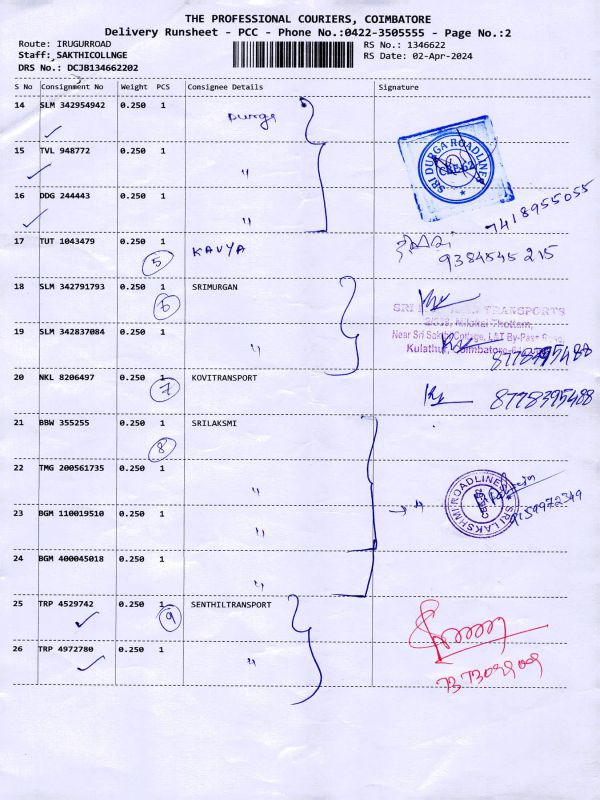 THE PROFESSIONAL COURIERS, COIMBATORE
Delivery Runsheet - PCC - Phone No.:0422-3505555 - Page No.:2
Route: IRUGURROAD
RS No.: 1346622
Staff: SAKTHICOLLNGE
RS Date: 02-Apr-2024
DRS No.: DCJB134662202
S No Consignment No Weight PCS Consignee Details Signature
14 SLM 342954942 0.250 1 Durga
15 TVL 948772 0.250 1 "
SRI DURGA ROADLINES
CBE-62
16 DDG 244443 0.250 1 "
7418955055
17 TUT 1043479 0.250 1 KAVYA
5
9384545215
18 SLM 342791793 0.250 1 SRIMURGAN
6
SRI TRANSPORTS
Nilakai Thottam,
19 SLM 342837084 0.250 1 "
Near Sri Sakthi Cottage, L&T By-Pass Road,
Kulathur, Coimbatore
8778395488
20 NKL 8206497 0.250 1 KOVITRANSPORT
7
8778395488
21 BBW 355255 0.250 1 SRILAKSMI
8
22 TMG 200561735 0.250 1 "
SRI LAKSHMI ROADLINES
23 BGM 110019510 0.250 1 "
9159972349
24 BGM 400045018 0.250 1 "
25 TRP 4529742 0.250 1 SENTHILTRANSPORT
9
26 TRP 4972780 0.250 1 "